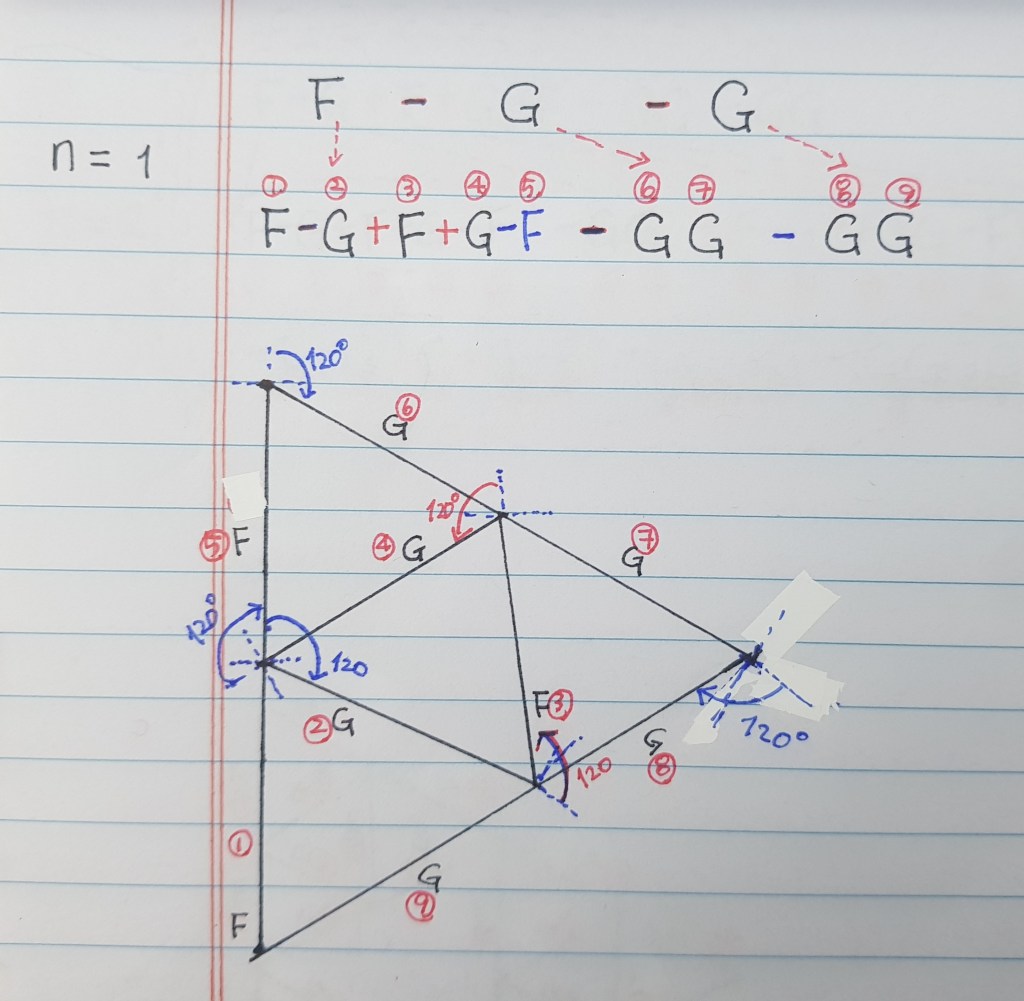 F - G - G
n = 1
① ② ③ ④ ⑤ ⑥ ⑦ ⑧ ⑨
F-G+F+G-F - GG - GG
120°
G ⑥
120°
④ G
G ⑦
⑤ F
120°
120
② G
F ③
120
120°
G
⑧
①
G
⑨
F